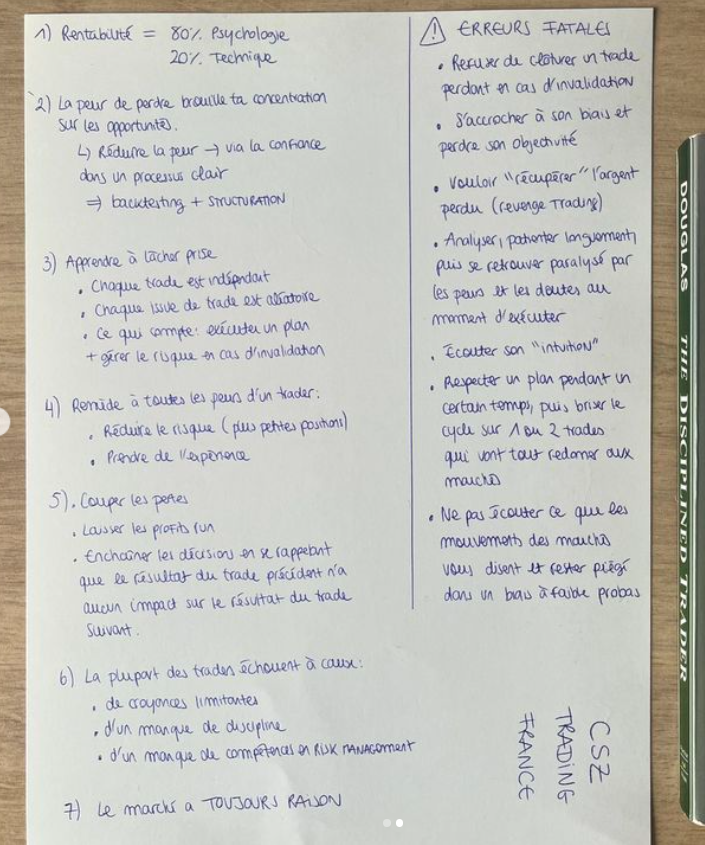 1) Rentabilité = 80% Psychologie
20% Technique
2) La peur de perdre brouille ta concentration
sur les opportunités.
↳ Réduire la peur → via la confiance
dans un processus clair
⇒ backtesting + STRUCTURATION
3) Apprendre à lâcher prise
• Chaque trade est indépendant
• Chaque issue de trade est aléatoire
• Ce qui compte: exécuter un plan
+ gérer le risque en cas d'invalidation
4) Remède à toutes les peurs d'un trader:
• Réduire le risque (plus petites positions)
• Prendre de l'expérience
5) • Couper les pertes
• Laisser les profits run
• Enchaîner les décisions en se rappelant
que le résultat du trade précédent n'a
aucun impact sur le résultat du trade
suivant.
6) La plupart des traders échouent à cause:
• de croyances limitantes
• d'un manque de discipline
• d'un manque de compétences en RISK MANAGEMENT
7) Le marché a TOUJOURS RAISON
⚠ ERREURS FATALES
• Refuser de clôturer un trade
perdant en cas d'invalidation
• S'accrocher à son biais et
perdre son objectivité
• Vouloir "récupérer" l'argent
perdu (revenge Trading)
• Analyser, patienter longuement,
puis se retrouver paralysé par
les peurs et les doutes au
moment d'exécuter
• Écouter son "intuition"
• Respecter un plan pendant un
certain temps, puis briser le
cycle sur 1 ou 2 trades
qui vont tout redonner aux
marchés
• Ne pas écouter ce que les
mouvements des marchés
vous disent et rester piégé
dans un biais à faible probas
CSZ
TRADING
FRANCE
DOUGLAS THE DISCIPLINED TRADER